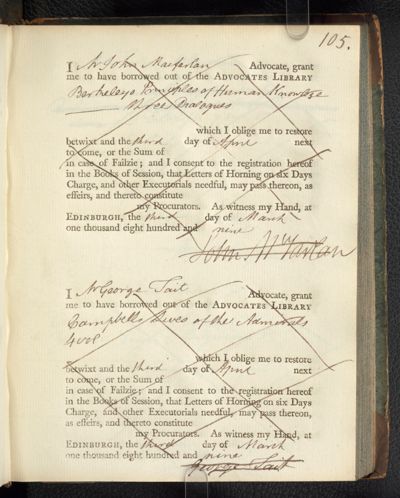 105.
I Mr John Macfarlan Advocate, grant
me to have borrowed out of the ADVOCATES LIBRARY
Berkeleys Principles of Human Knowlege
Three Dialogues
which I oblige me to restore
betwixt and the third day of April next
to come, or the Sum of
in case of Failzie; and I consent to the registration hereof
in the Books of Session, that Letters of Horning on six Days
Charge, and other Executorials needful, may pass thereon, as
effeirs, and thereto constitute
my Procurators. As witness my Hand, at
EDINBURGH, the third day of March
one thousand eight hundred and nine
John
I Mr George Tait Advocate, grant
me to have borrowed out of the ADVOCATES LIBRARY
Campbells Lives of the Admirals
4 vol
which I oblige me to restore
betwixt and the third day of April next
to come, or the Sum of
in case of Failzie; and I consent to the registration hereof
in the Books of Session, that Letters of Horning on six Days
Charge, and other Executorials needful, may pass thereon,
as effeirs, and thereto constitute
my Procurators. As witness my Hand, at
EDINBURGH, the third day of March
one thousand eight hundred and nine
George Tait